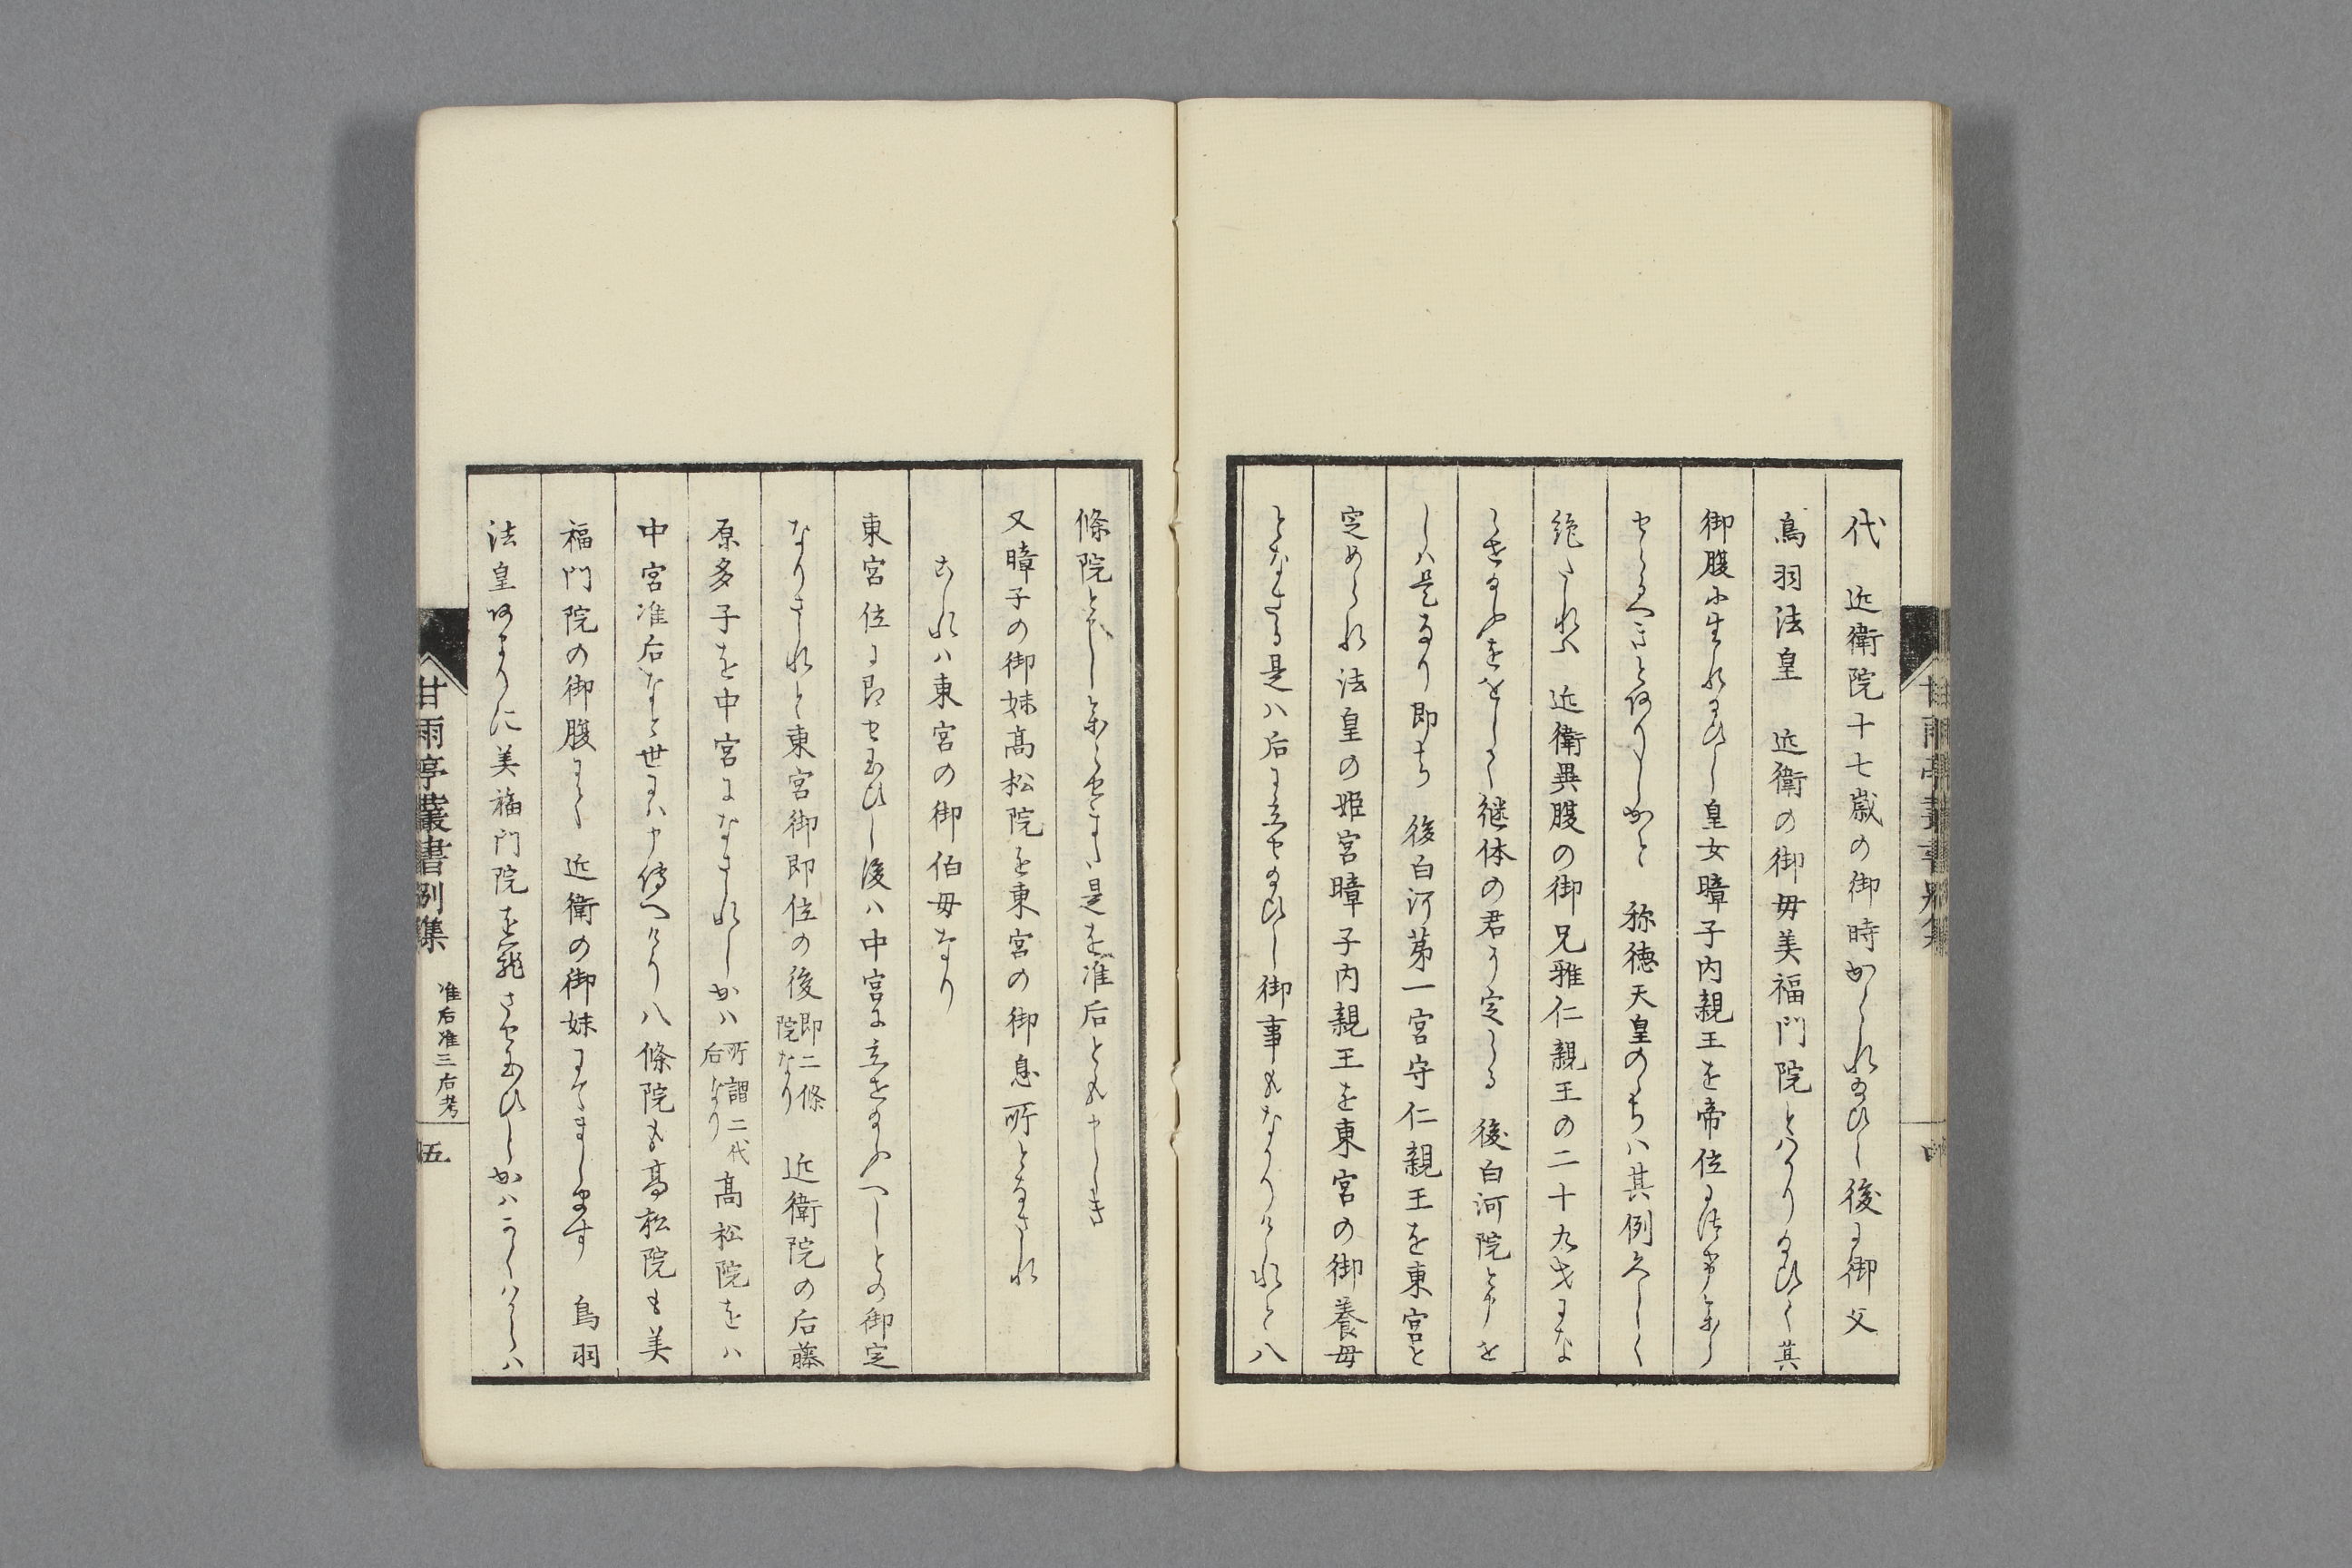 代　近衛院十七歳の御時かくれ給ひし後に御父
鳥羽法皇　近衛の御母美福門院とはかり給ひて其
御腹に生れ給ひし皇女暲子内親王を帝位に
せらるへきとありしかと　称徳天皇のゝちハ其例久しく
絶たれハ　近衛異腹の御兄雅仁親王の二十九才にな
らせ給ふをもて継体の君に定らる　後白河院と申を
しハ是なり即ち　後白河第一宮守仁親王を東宮と
定められ法皇の姫宮暲子内親王を東宮の御養母
となさる是ハ后に立せ給ひし御事もなかりけれと八
條院とそし是を准后とも申しき
又暲子の御妹高松院を東宮の御息所となされ
これハ東宮の御伯母なり
東宮位に即せ給ひし後ハ中宮に立せ給ふへしとの御定
なりされと東宮御即位の後即二條院なり　近衛院の后藤
原多子を中宮になされしかハ所謂二代后なり高松院をハ
中宮准后なと世にハ申傳へけり八條院も高松院も美
福門院の御腹にて　近衛の御妹にてまします　鳥羽
法皇あまりに美福門院を寵させ給ひしかハかくハ
甘雨亭叢書別集　准后准三后考　五